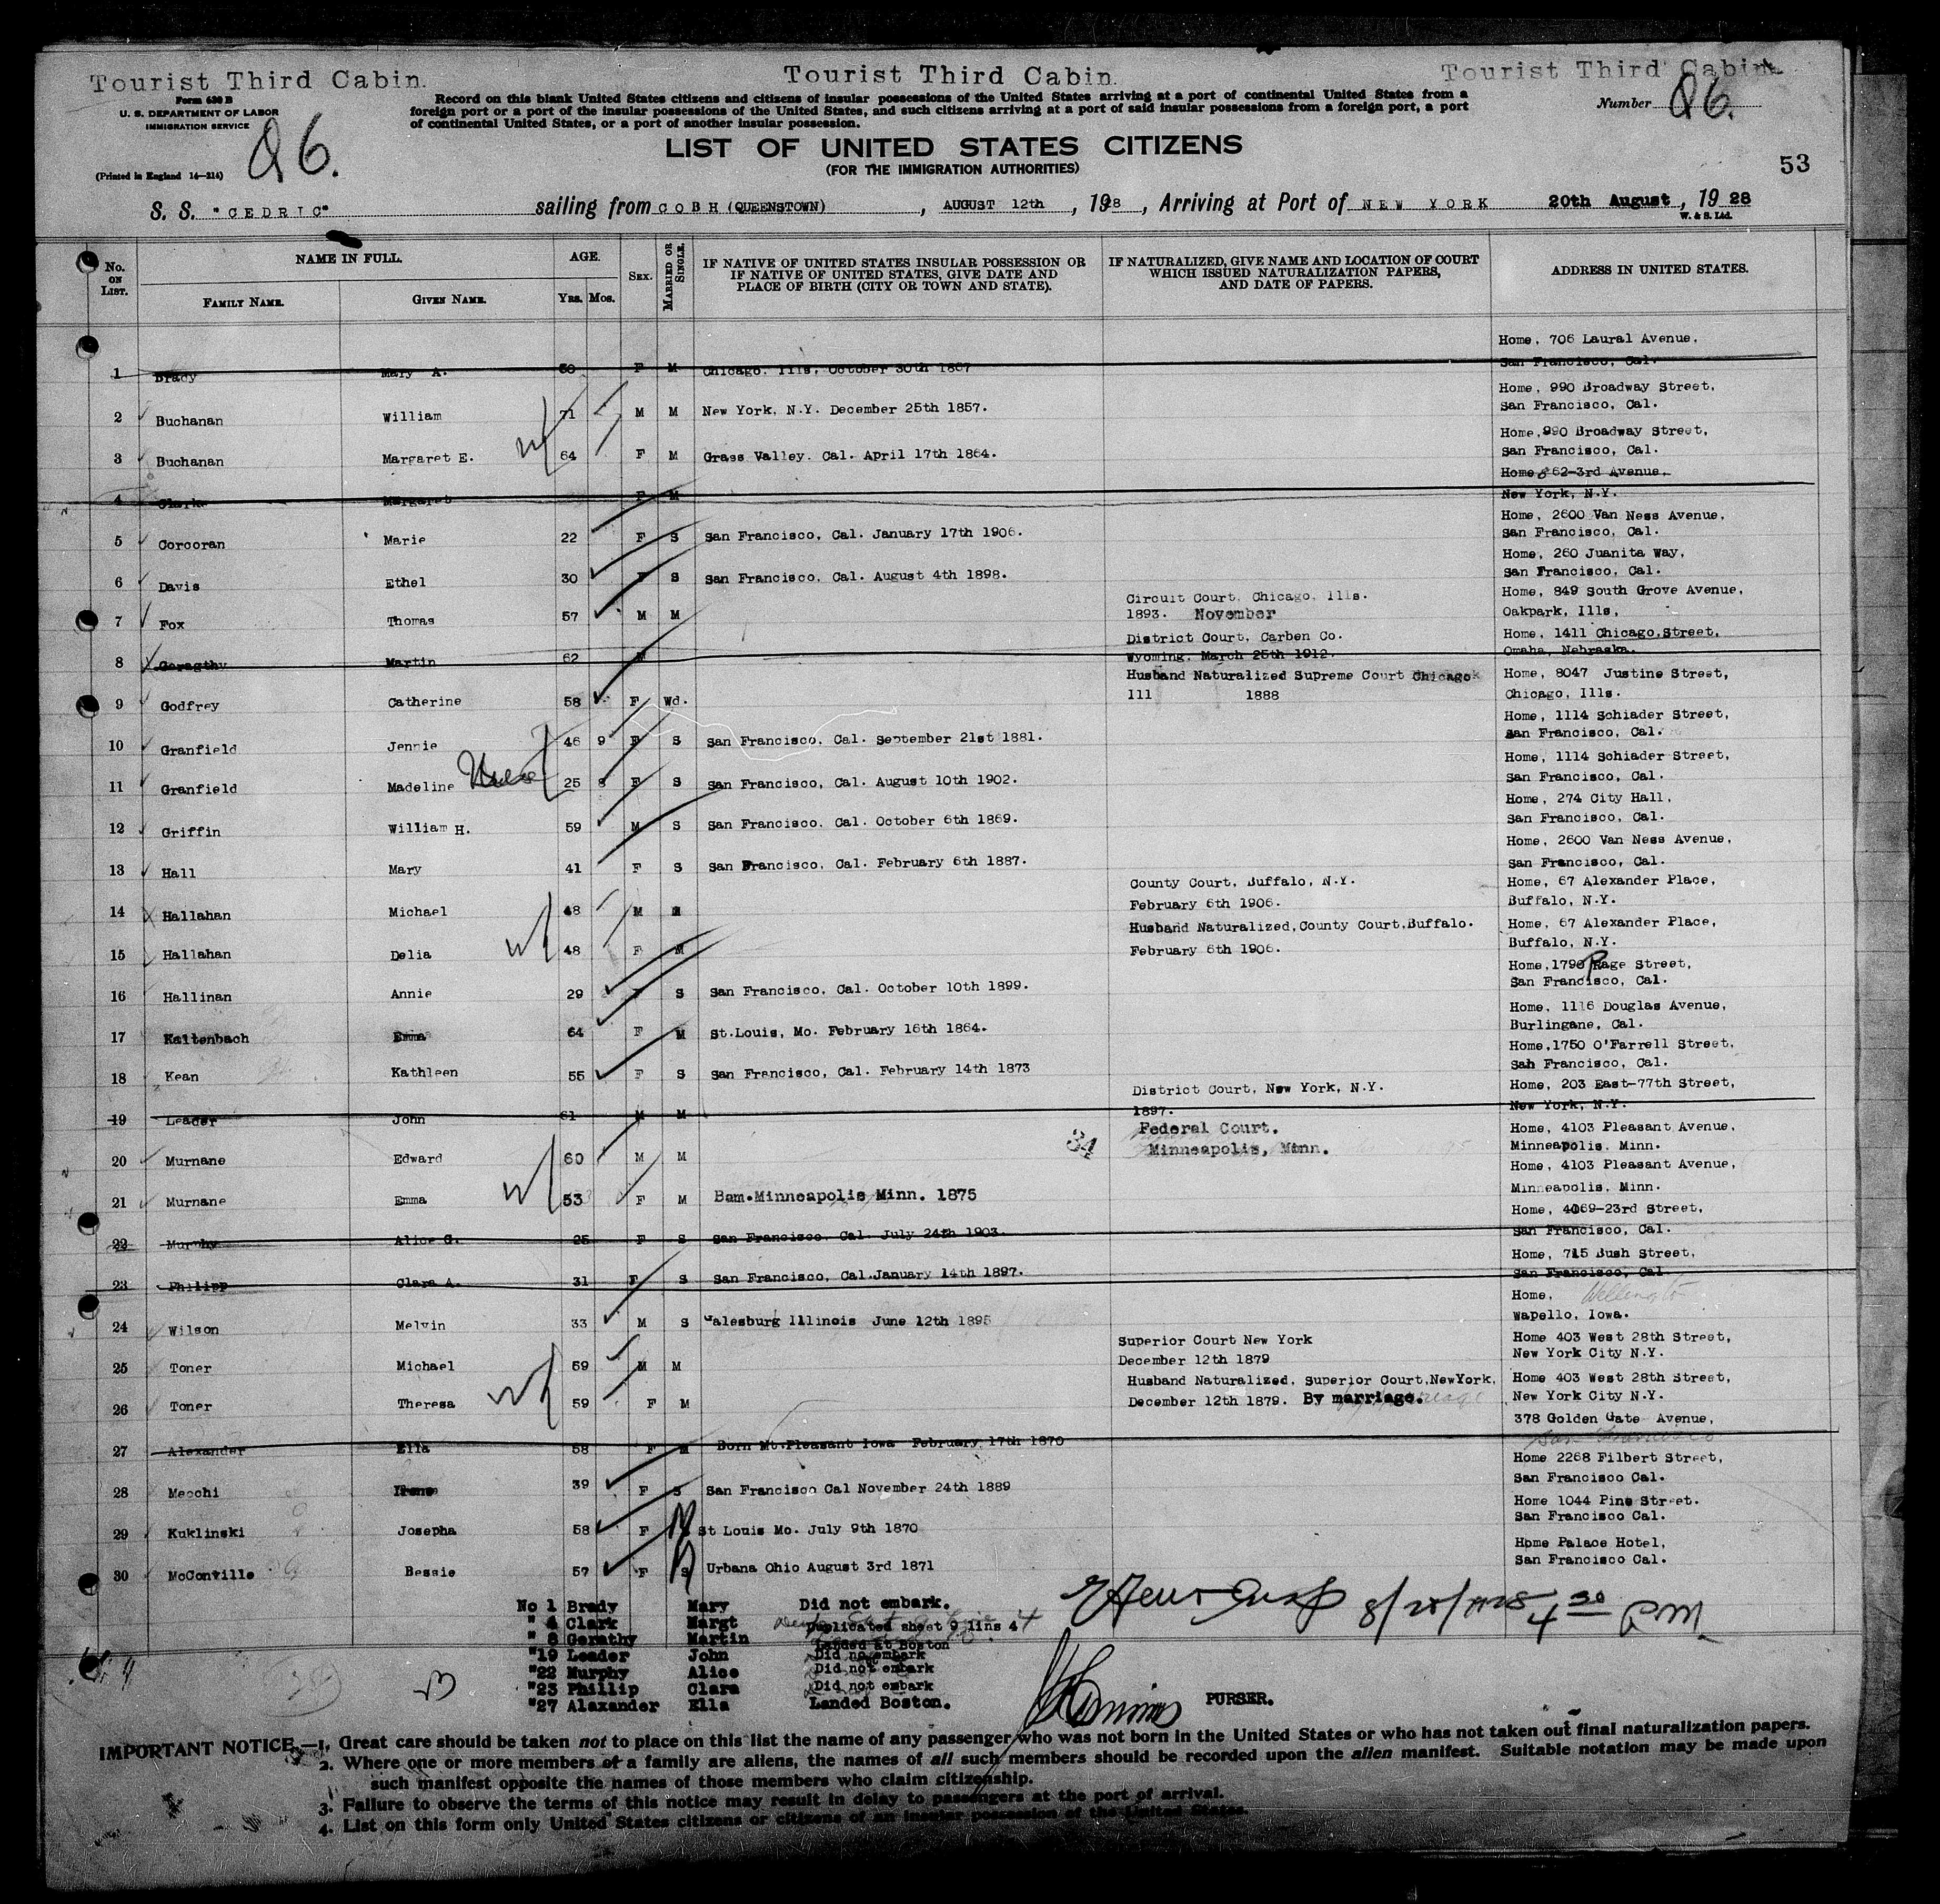 Tourist Third Cabin. Tourist Third Cabin. Tourist Third Cabin.
Form 630 B
U. S. DEPARTMENT OF LABOR
IMMIGRATION SERVICE
(Printed in England 14—214)
Q6.
Record on this blank United States citizens and citizens of insular possessions of the United States arriving at a port of continental United States from a
foreign port or a port of the insular possessions of the United States, and such citizens arriving at a port of said insular possessions from a foreign port, a port
of continental United States, or a port of another insular possession.
Number Q6.
LIST OF UNITED STATES CITIZENS
(FOR THE IMMIGRATION AUTHORITIES)
53
S. S. "CEDRIC" sailing from COBH (QUEENSTOWN) , AUGUST 12th , 1928 , Arriving at Port of NEW YORK 20th August , 1928
W. & S. Ltd.
No. ON LIST. NAME IN FULL. FAMILY NAME. GIVEN NAME. AGE. YRS. MOS. SEX. MARRIED OR SINGLE. IF NATIVE OF UNITED STATES INSULAR POSSESSION OR IF NATIVE OF UNITED STATES, GIVE DATE AND PLACE OF BIRTH (CITY OR TOWN AND STATE). IF NATURALIZED, GIVE NAME AND LOCATION OF COURT WHICH ISSUED NATURALIZATION PAPERS, AND DATE OF PAPERS. ADDRESS IN UNITED STATES.
Home, 706 Laural Avenue,
1 Brady Mary A. F M Chicago. Ills, October 30th 1867 San Francisco, Cal.
Home, 990 Broadway Street,
2 Buchanan William 71 M M New York, N.Y. December 25th 1857. San Francisco, Cal.
Home, 990 Broadway Street,
3 Buchanan Margaret E. 64 F M Grass Valley. Cal. April 17th 1864. San Francisco, Cal.
Home 62-3rd Avenue.
4 Clark Margaret F M New York, N.Y.
Home, 2600 Van Ness Avenue,
5 Corcoran Marie 22 F S San Francisco, Cal. January 17th 1906. San Francisco, Cal.
Home, 260 Juanita Way,
6 Davis Ethel 30 F S San Francisco, Cal. August 4th 1898. San Francisco, Cal.
Circuit Court, Chicago, Ills. Home, 849 South Grove Avenue,
7 Fox Thomas 57 M M 1893. November Oakpark, Ills,
District Court, Carben Co. Home, 1411 Chicago Street,
8 Geragthy Martin 62 M Wyoming, March 25th 1912. Omaha, Nebraska.
Husband Naturalized Supreme Court Chicago Home, 8047 Justine Street,
9 Godfrey Catherine 58 F Wd. Ill 1888 Chicago, Ills.
Home, 1114 Schiader Street,
10 Granfield Jennie 46 9 F S San Francisco. Cal. September 21st 1881. San Francisco, Cal.
Home, 1114 Schiader Street,
11 Granfield Madeline 25 8 F S San Francisco, Cal. August 10th 1902. San Francisco, Cal.
Home, 274 City Hall,
12 Griffin William H. 59 M S San Francisco. Cal. October 6th 1869. San Francisco, Cal.
Home, 2600 Van Ness Avenue,
13 Hall Mary 41 F S San Francisco, Cal. February 6th 1887. San Francisco, Cal.
County Court, Buffalo, N.Y. Home, 67 Alexander Place,
14 Hallahan Michael 48 M M February 6th 1906. Buffalo, N.Y.
Husband Naturalized, County Court, Buffalo. Home, 67 Alexander Place,
15 Hallahan Delia 48 F M February 6th 1906. Buffalo, N.Y.
Home, 1790 Page Street,
16 Hallinan Annie 29 F S San Francisco, Cal. October 10th 1899. San Francisco, Cal.
Home, 1116 Douglas Avenue,
17 Kaltenbach Emma 64 F M St.Louis, Mo. February 16th 1864. Burlingane, Cal.
Home, 1750 O'Farrell Street,
18 Kean Kathleen 55 F S San Francisco, Cal. February 14th 1873 San Francisco, Cal.
District Court, New York, N.Y. Home, 203 East-77th Street,
19 Leader John 61 M M 1897. New York, N.Y.
34 Federal Court. Home, 4103 Pleasant Avenue,
20 Murnane Edward 60 M M Minneapolis, Minn. Minneapolis. Minn.
Home, 4103 Pleasant Avenue,
21 Murnane Emma 53 F M Minneapolis Minn. 1875 Minneapolis. Minn.
Home, 4069-23rd Street,
22 Murphy Alice G. 25 F S San Francisco, Cal. July 24th 1903. San Francisco, Cal.
Home, 715 Bush Street,
23 Philipp Clara A. 31 F S San Francisco, Cal. January 14th 1897. San Francisco, Cal.
Home, Wellington
24 Wilson Melvin 33 M S Galesburg Illinois June 12th 1895 Wapello, Iowa.
Superior Court New York Home 403 West 28th Street,
25 Toner Michael 59 M M December 12th 1879 New York City N.Y.
Husband Naturalized, Superior Court, NewYork, Home 403 West 28th Street,
26 Toner Theresa 59 F M December 12th 1879. By marriage. New York City N.Y.
378 Golden Gate Avenue,
27 Alexander Ella 58 F M Born Mt.Pleasant Iowa February 17th 1870 San Francisco
Home 2268 Filbert Street,
28 Mecchi Irene 39 F S San Francisco Cal November 24th 1889 San Francisco Cal.
Home 1044 Pine Street.
29 Kuklinski Josepha 58 F M St Louis Mo. July 9th 1870 San Francisco Cal.
Home Palace Hotel,
30 McConville Bessie 57 F Urbana Ohio August 3rd 1871 San Francisco Cal.
No 1 Brady Mary Did not embark.
" 4 Clark Margt Duplicated sheet 9 line 4
" 8 Gerathy Martin Landed at Boston
"19 Leader John Did not embark
"22 Murphy Alice Did not embark
"23 Phillip Clara Did not embark
"27 Alaxander Ella Landed Boston.
4 30 PM
PURSER.
IMPORTANT NOTICE.—1. Great care should be taken not to place on this list the name of any passenger who was not born in the United States or who has not taken out final naturalization papers.
2. Where one or more members of a family are aliens, the names of all such members should be recorded upon the alien manifest. Suitable notation may be made upon
such manifest opposite the names of those members who claim citizenship.
3. Failure to observe the terms of this notice may result in delay to passengers at the port of arrival.
4. List on this form only United States citizens or citizens of an insular possession of the United States.